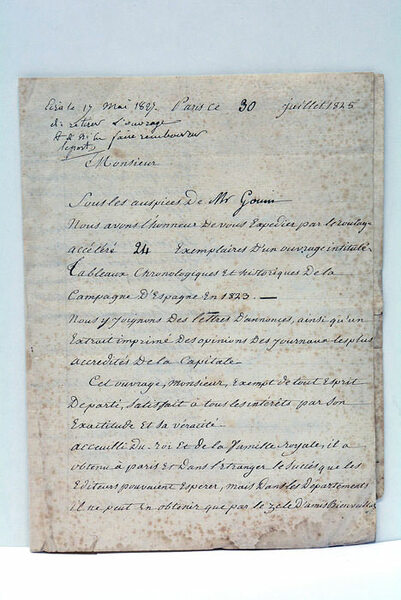 le 17 Mai 1827. Paris ce 30 juillet 1825
de retirer l'ouvrage
faire rembourser
le port
Monsieur
Sous les auspices De Mr Gouin
Nous avons l'honneur De vous Expedier par le roulage
accéléré 24 Exemplaires D'un ouvrage intitulé
Tableaux Chronologiques Et historiques De la
Campagne D'Espagne En 1823. —
Nous y joignons Des lettres D'annonces, ainsi qu'un
Extrait imprimé Des opinions Des journaux les plus
accredités De la Capitale.
Cet ouvrage, monsieur, Exempt de tout Esprit
De parti, satisfait à tous les intérêts par son
Exactitude Et sa véracité.
accueilli Du Roi Et de la famille royale, il a
obtenu à paris Et Dans l'Etranger le succès que les
Editeurs pouvaient Esperer, mais Dans les Departements
il ne peut En obtenir que par le zèle D'amis Bienveillans